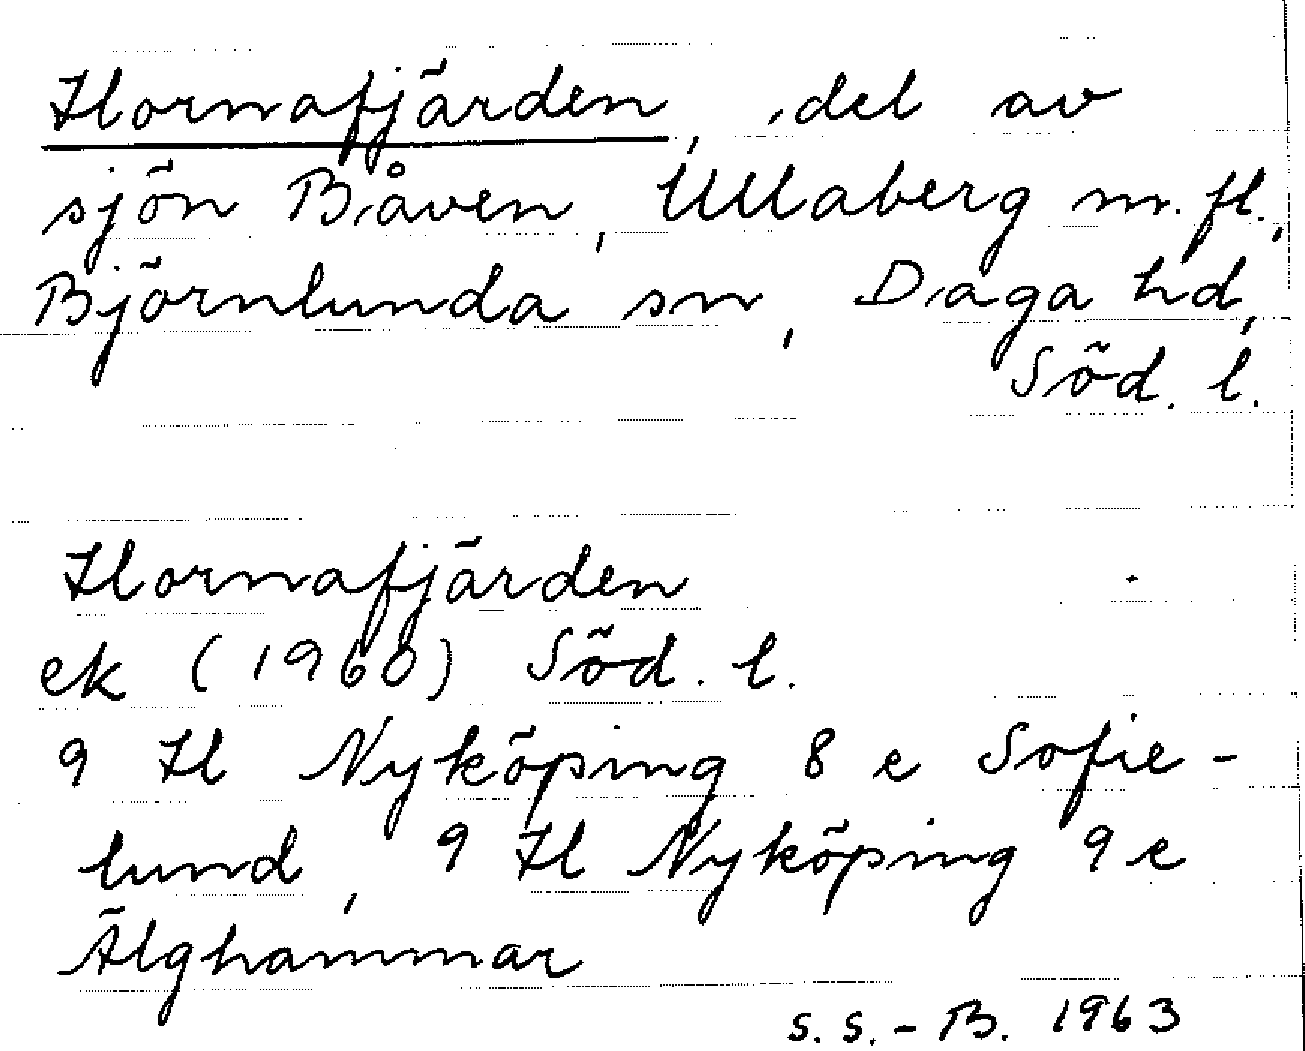 Hornafjärden, del av
sjön Båven, Ullaberg m. fl.,
Björnlunda sn, Daga hd,
Söd. l.
Hornafjärden
ek (1960) Söd. l.
9 H Nyköping 8 e Sofie-
lund, 9 H Nyköping 9 e
Älghammar
S. S. - B. 1963